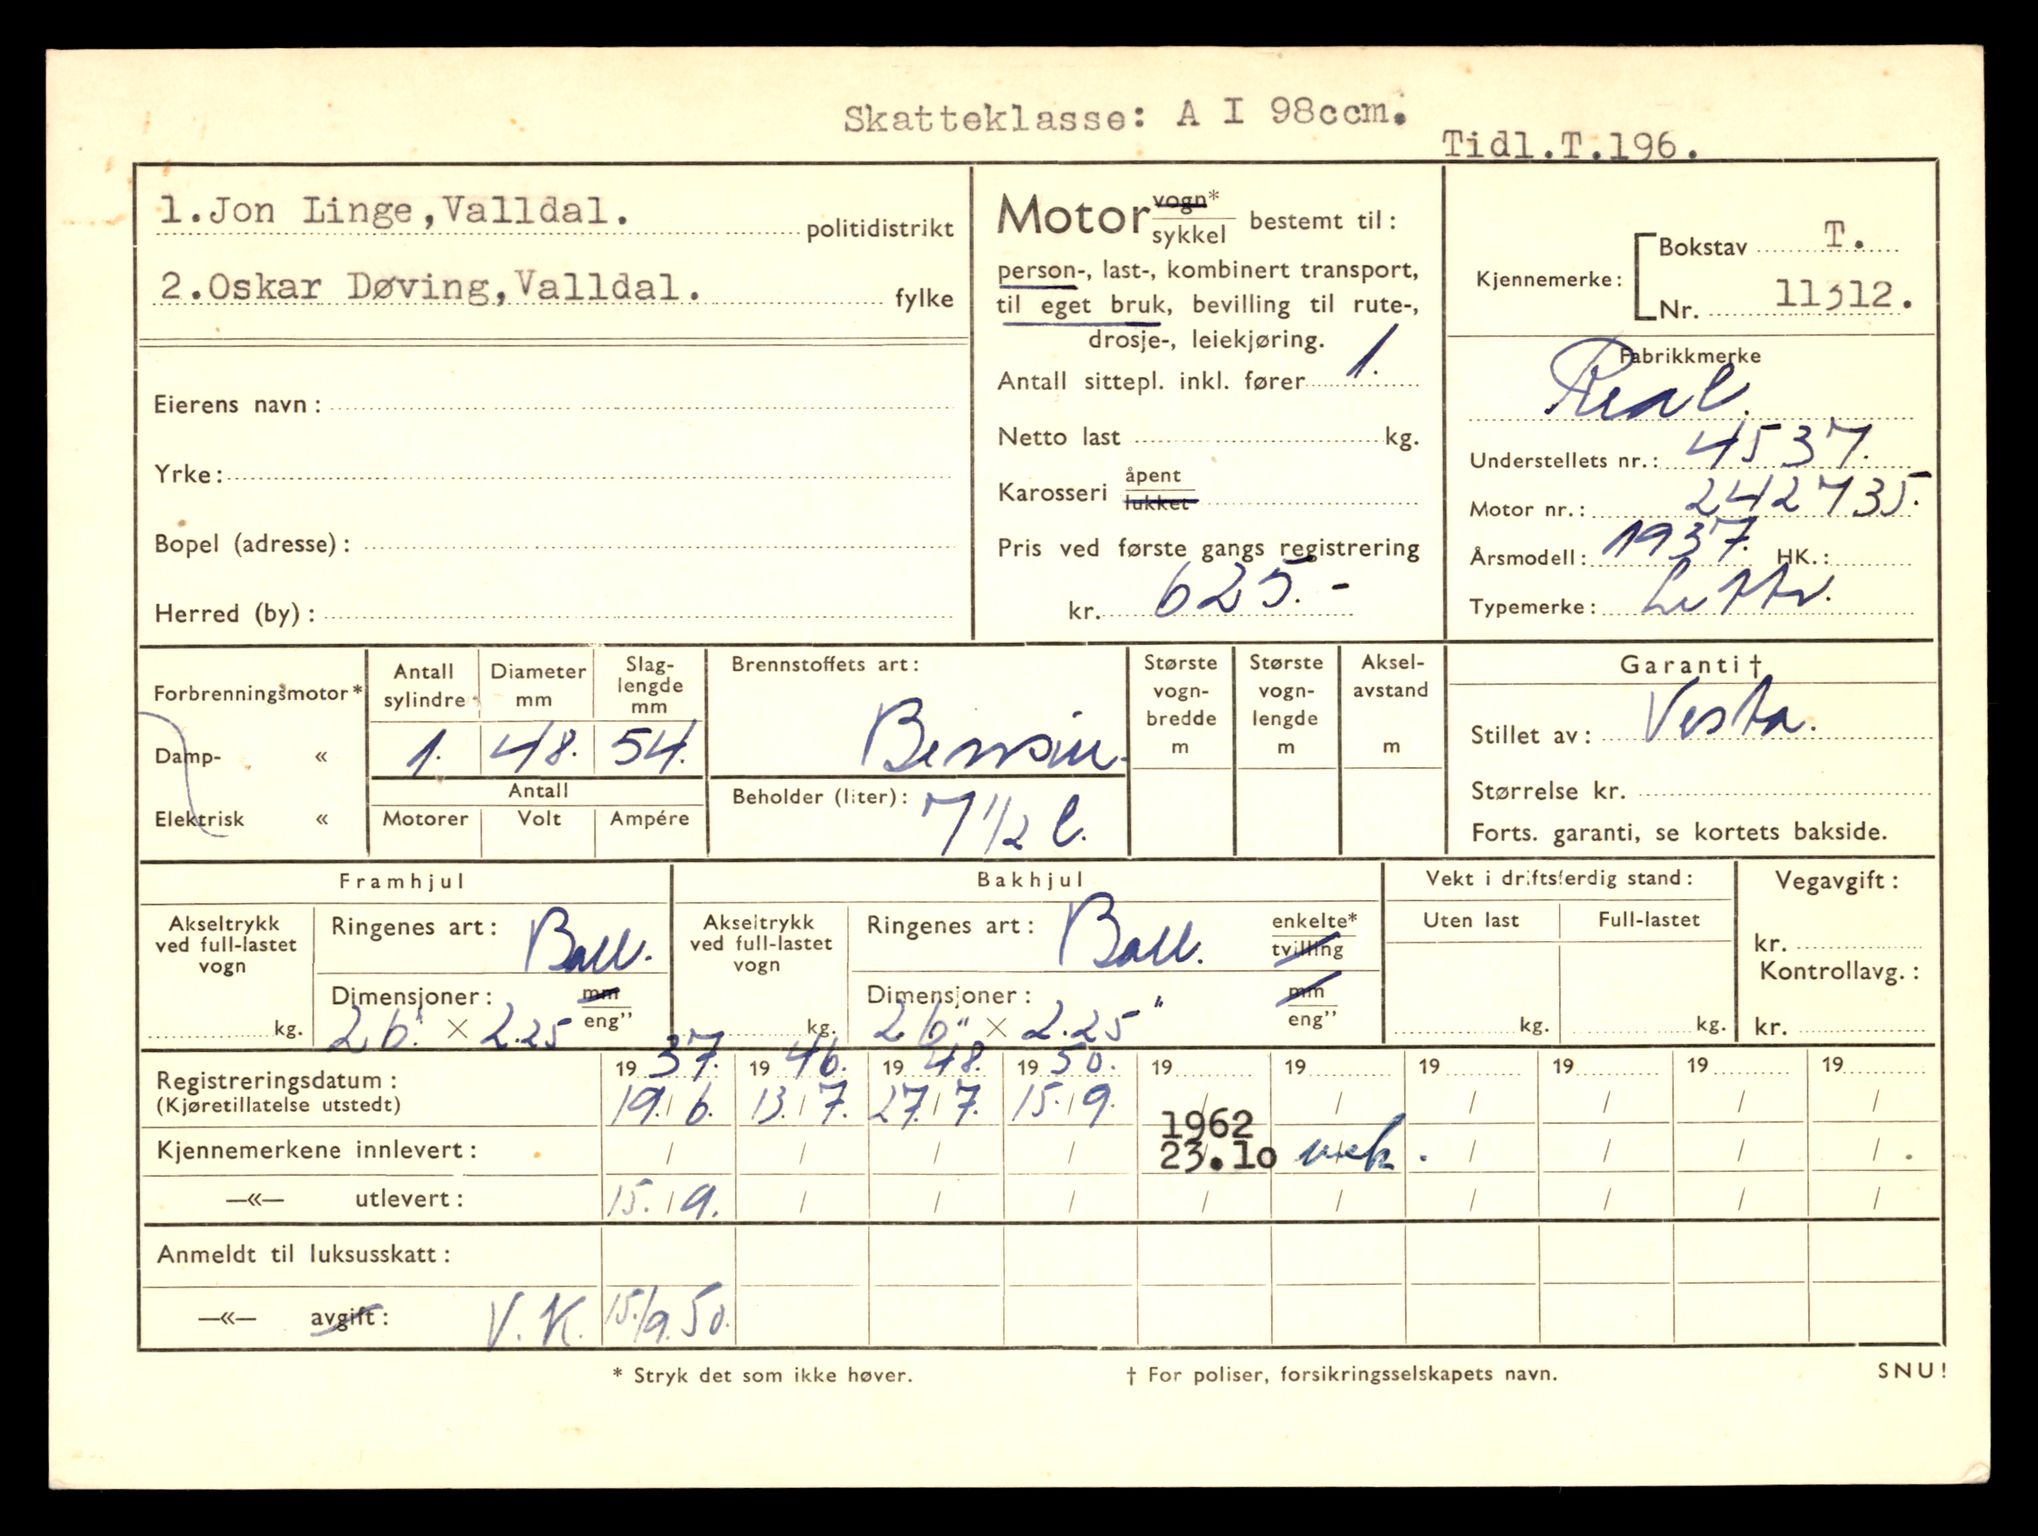 Skatteklasse: A I 98ccm.
Tidl.T.196.
1.Jon Linge,Valldal. politidistrikt
2.Oskar Døving,Valldal. fylke
Eierens navn:
Yrke:
Bopel (adresse):
Herred (by):
Motor vogn* sykkel bestemt til:
person-, last-, kombinert transport,
til eget bruk, bevilling til rute-,
drosje-, leiekjøring.
Antall sittepl. inkl. fører 1.
Netto last kg.
Karosseri åpent lukket
Pris ved første gangs registrering
kr. 625.-
Kjennemerke: Bokstav T.
Nr. 11312.
Fabrikkmerke
Real.
Understellets nr.: 4537.
Motor nr.: 242735.
Årsmodell: 1937. HK.:
Typemerke:
Forbrenningsmotor*
Damp- «
Elektrisk «
Antall sylindre Diameter mm Slaglengde mm
1. 48. 54.
Antall
Motorer Volt Ampére
Brennstoffets art:
Bensin.
Beholder (liter): 7 1/2 l.
Største vognbredde m
Største vognlengde m
Akselavstand m
Garanti†
Stillet av: Vesta.
Størrelse kr.
Forts. garanti, se kortets bakside.
Framhjul
Akseltrykk ved full-lastet vogn
kg.
Ringenes art: Ball.
Dimensjoner: mm eng''
26" × 2.25
Bakhjul
Akseltrykk ved full-lastet vogn
kg.
Ringenes art: Ball. enkelte* tvilling
Dimensjoner: mm eng''
26" × 2.25"
Vekt i driftsferdig stand:
Uten last Full-lastet
kg. kg.
Vegavgift:
kr.
Kontrollavg.:
kr.
19 37. 19 46. 19 48. 19 50. 19 19 19 19 19 19
Registreringsdatum:
(Kjøretillatelse utstedt)
19./6. 13./7. 27./7. 15./9. / / / / / /
1962
Kjennemerkene innlevert: / / / / 23.10 vrak. / / / /
—«— utlevert: 15./9. / / / / / / / / /
Anmeldt til luksusskatt:
—«— avgift: V.K. 15./9.50.
* Stryk det som ikke høver.
† For poliser, forsikringsselskapets navn.
SNU!